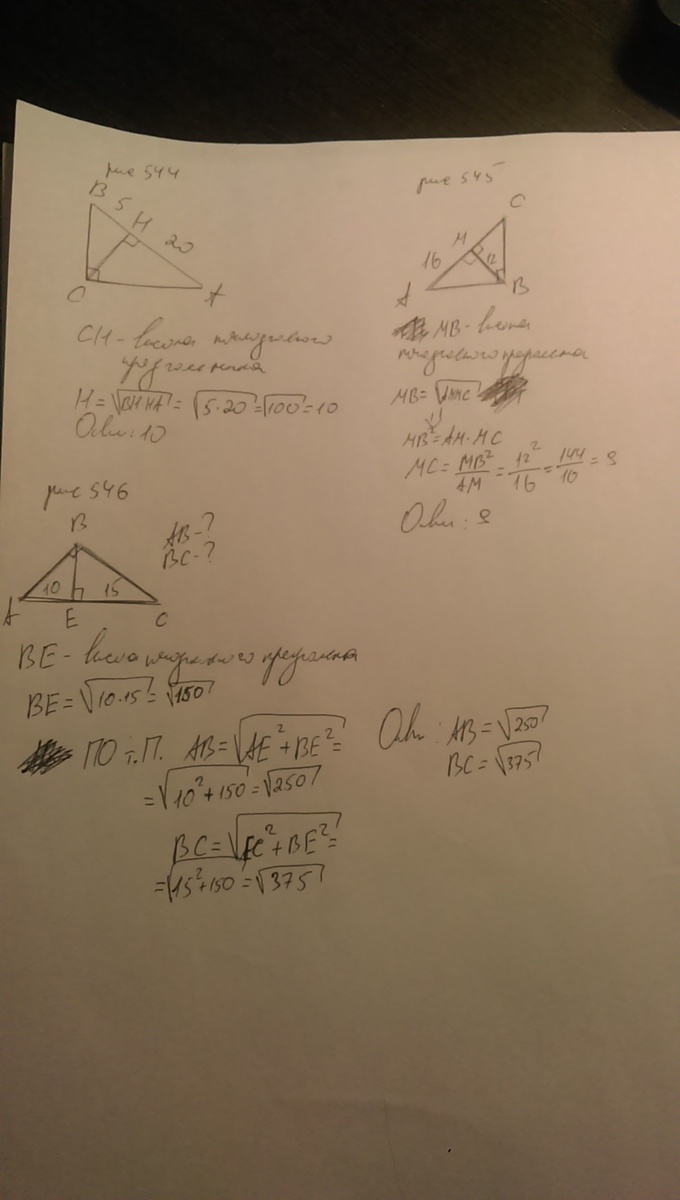 рис 544
B
5
H
20
C
A
CH - высота прямоугольного
треугольника
H = √BH·HA = √5·20 = √100 = 10
Ответ: 10
рис 545
C
M
16
12
A
B
MB - высота
прямоугольного треугольника
MB = √AM·MC
MB² = AM·MC
MC = MB²/AM = 12²/16 = 144/16 = 9
Ответ: 9
рис 546
B
AB - ?
BC - ?
10
15
A
E
C
BE - высота прямоугольного треугольника
BE = √10·15 = √150
ПО т.П. AB = √AE² + BE² =
= √10² + 150 = √250
BC = √EC² + BE² =
= √15² + 150 = √375
Ответ: AB = √250
BC = √375